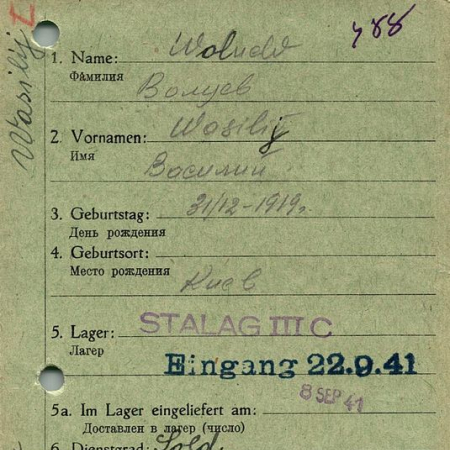 488
Wasilij
1. Name:
Фамилия
Волуев
2. Vornamen: Wasilij
Имя
Василий
3. Geburtstag: 31/12-1919г.
День рождения
4. Geburtsort:
Место рождения
Киев
5. Lager: STALAG III C
Лагер
Eingang 22.9.41
8 SEP 41
5a. Im Lager eingeliefert am:
Доставлен в лагер (число)
6. Dienstgrad: Sold